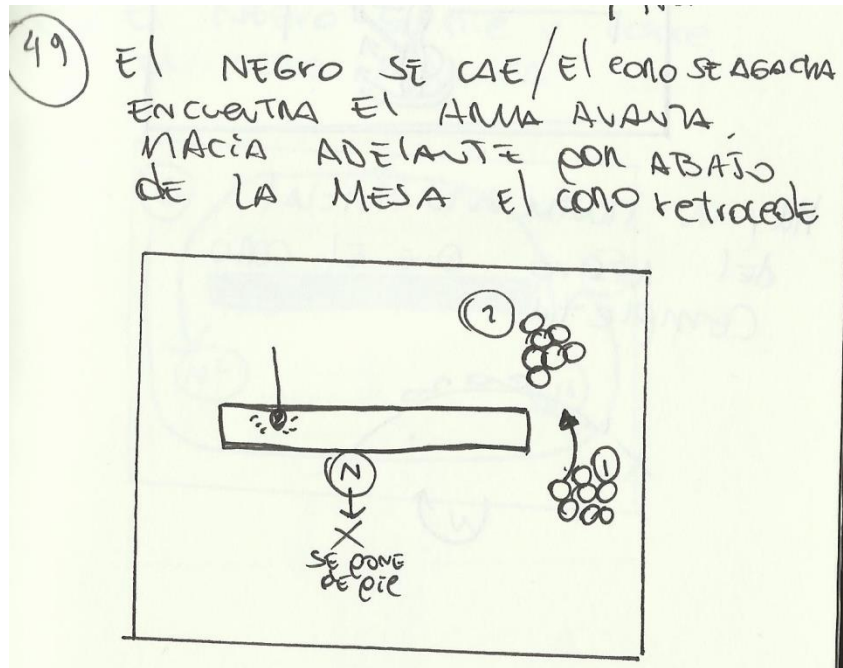 49
El NEGRO SE CAE/El CORO SE AGACHA
ENCUENTRA El ARMA AVANZA
HACIA ADElANTE POR ABAJO
dE LA MESA El CORO retrocede
2
1
N
SE PONE
DE PIE